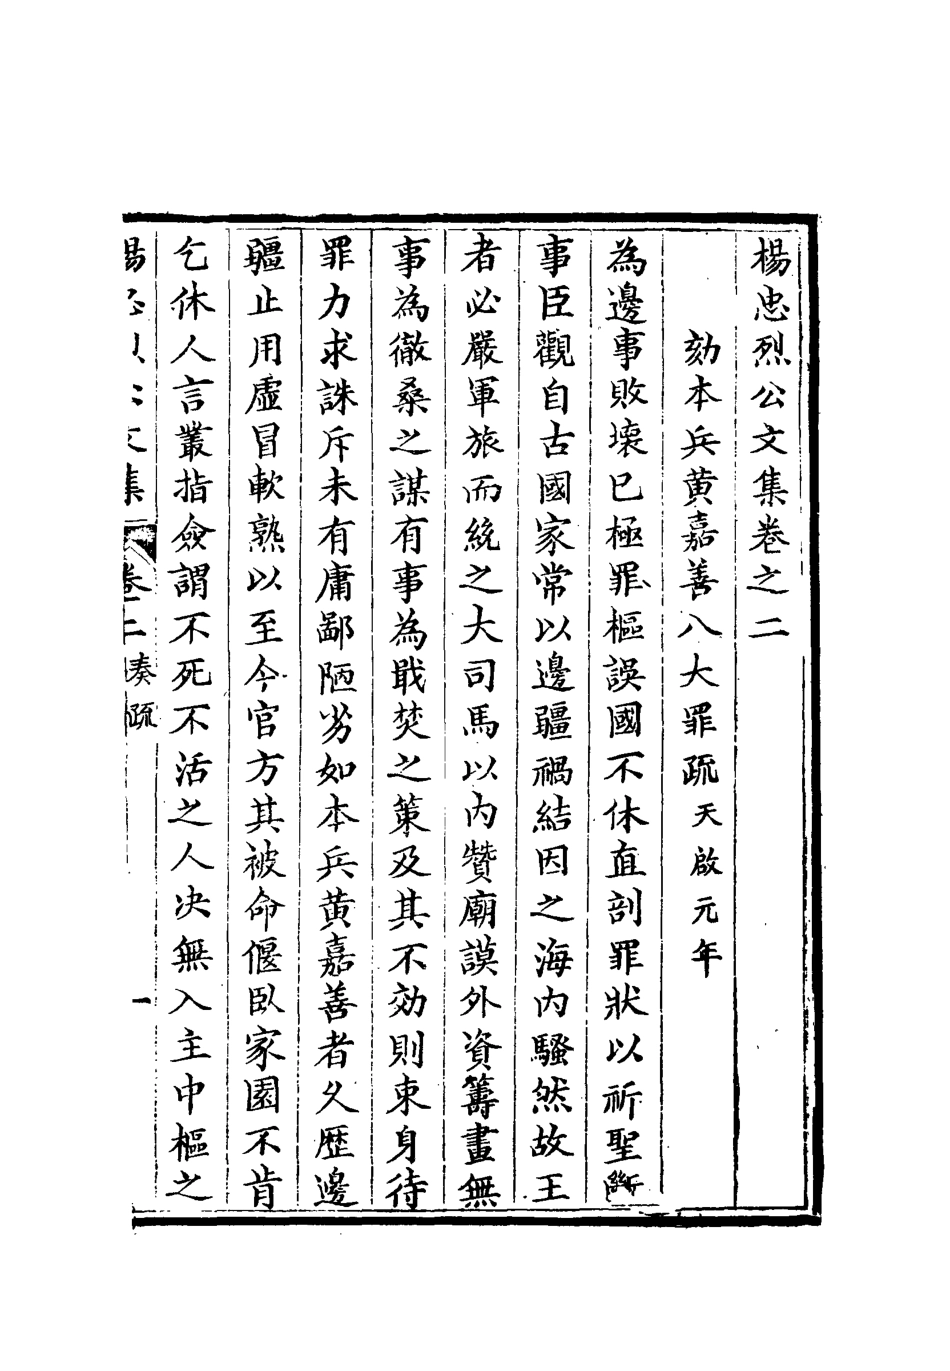 楊忠烈公文集卷之二
劾本兵黄嘉善八大罪疏天啟元年
為邊事敗壞已極罪樞誤國不休直剖罪狀以祈聖斷
事臣觀自古國家常以邊疆禍結因之海内騷然故王
者必嚴軍旅而統之大司馬以内贊廟謨外資籌畫無
事為徹桑之謀有事為戢焚之策及其不効則束身待
罪力求誅斥未有庸鄙陋劣如本兵黄嘉善者久歴邊
疆止用虛冒軟熟以至今官方其被命偃臥家園不肯
乞休人言叢指僉謂不死不活之人决無入主中樞之
文集 卷二 奏疏 一